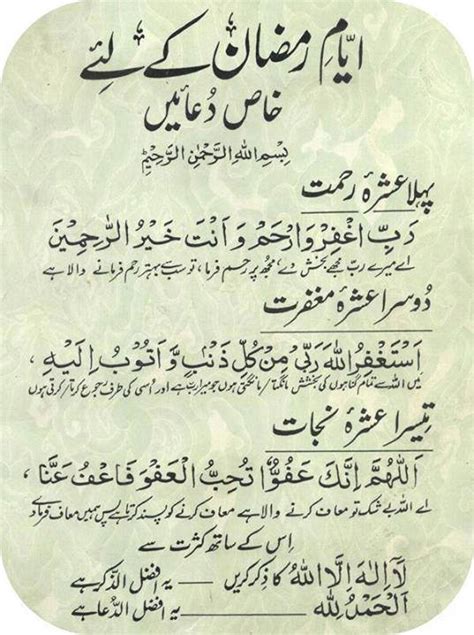 ایّامِ رمضان کے لئے
خاص دُعائیں
بِسْمِ اللهِ الرَّحْمٰنِ الرَّحِيْمِ
پہلا عشرۂ رحمت
رَبِّ اغْفِرْ وَارْحَمْ وَاَنْتَ خَيْرُ الرّٰحِمِيْنَ
اے میرے رب مجھے بخش دے، مجھ پر رحم فرما، تو سب سے بہتر رحم فرمانے والا ہے
دُوسرا عشرۂ مغفرت
اَسْتَغْفِرُ اللهَ رَبِّيْ مِنْ كُلِّ ذَنْبٍ وَّاَتُوْبُ اِلَيْهِ،
میں اللہ سے تمام گناہوں کی بخشش مانگتا/مانگتی ہوں جو میرا رب ہے اور اسی کی طرف رجوع کرتا/کرتی ہوں
تیسرا عشرۂ نجات
اَللّٰهُمَّ اِنَّكَ عَفُوٌّ تُحِبُّ الْعَفْوَ فَاعْفُ عَنَّا،
اے اللہ بے شک تو معاف کرنے والا ہے معاف کرنے کو پسند کرتا ہے پس ہمیں معاف فرما دے
اِس کے ساتھ کثرت سے
لَآ اِلٰهَ اِلَّا اللهُ کا ذکر کریں — یہ افضل الذّکر ہے
اَلْحَمْدُ لِلّٰهِ — یہ افضل الدُّعا ہے